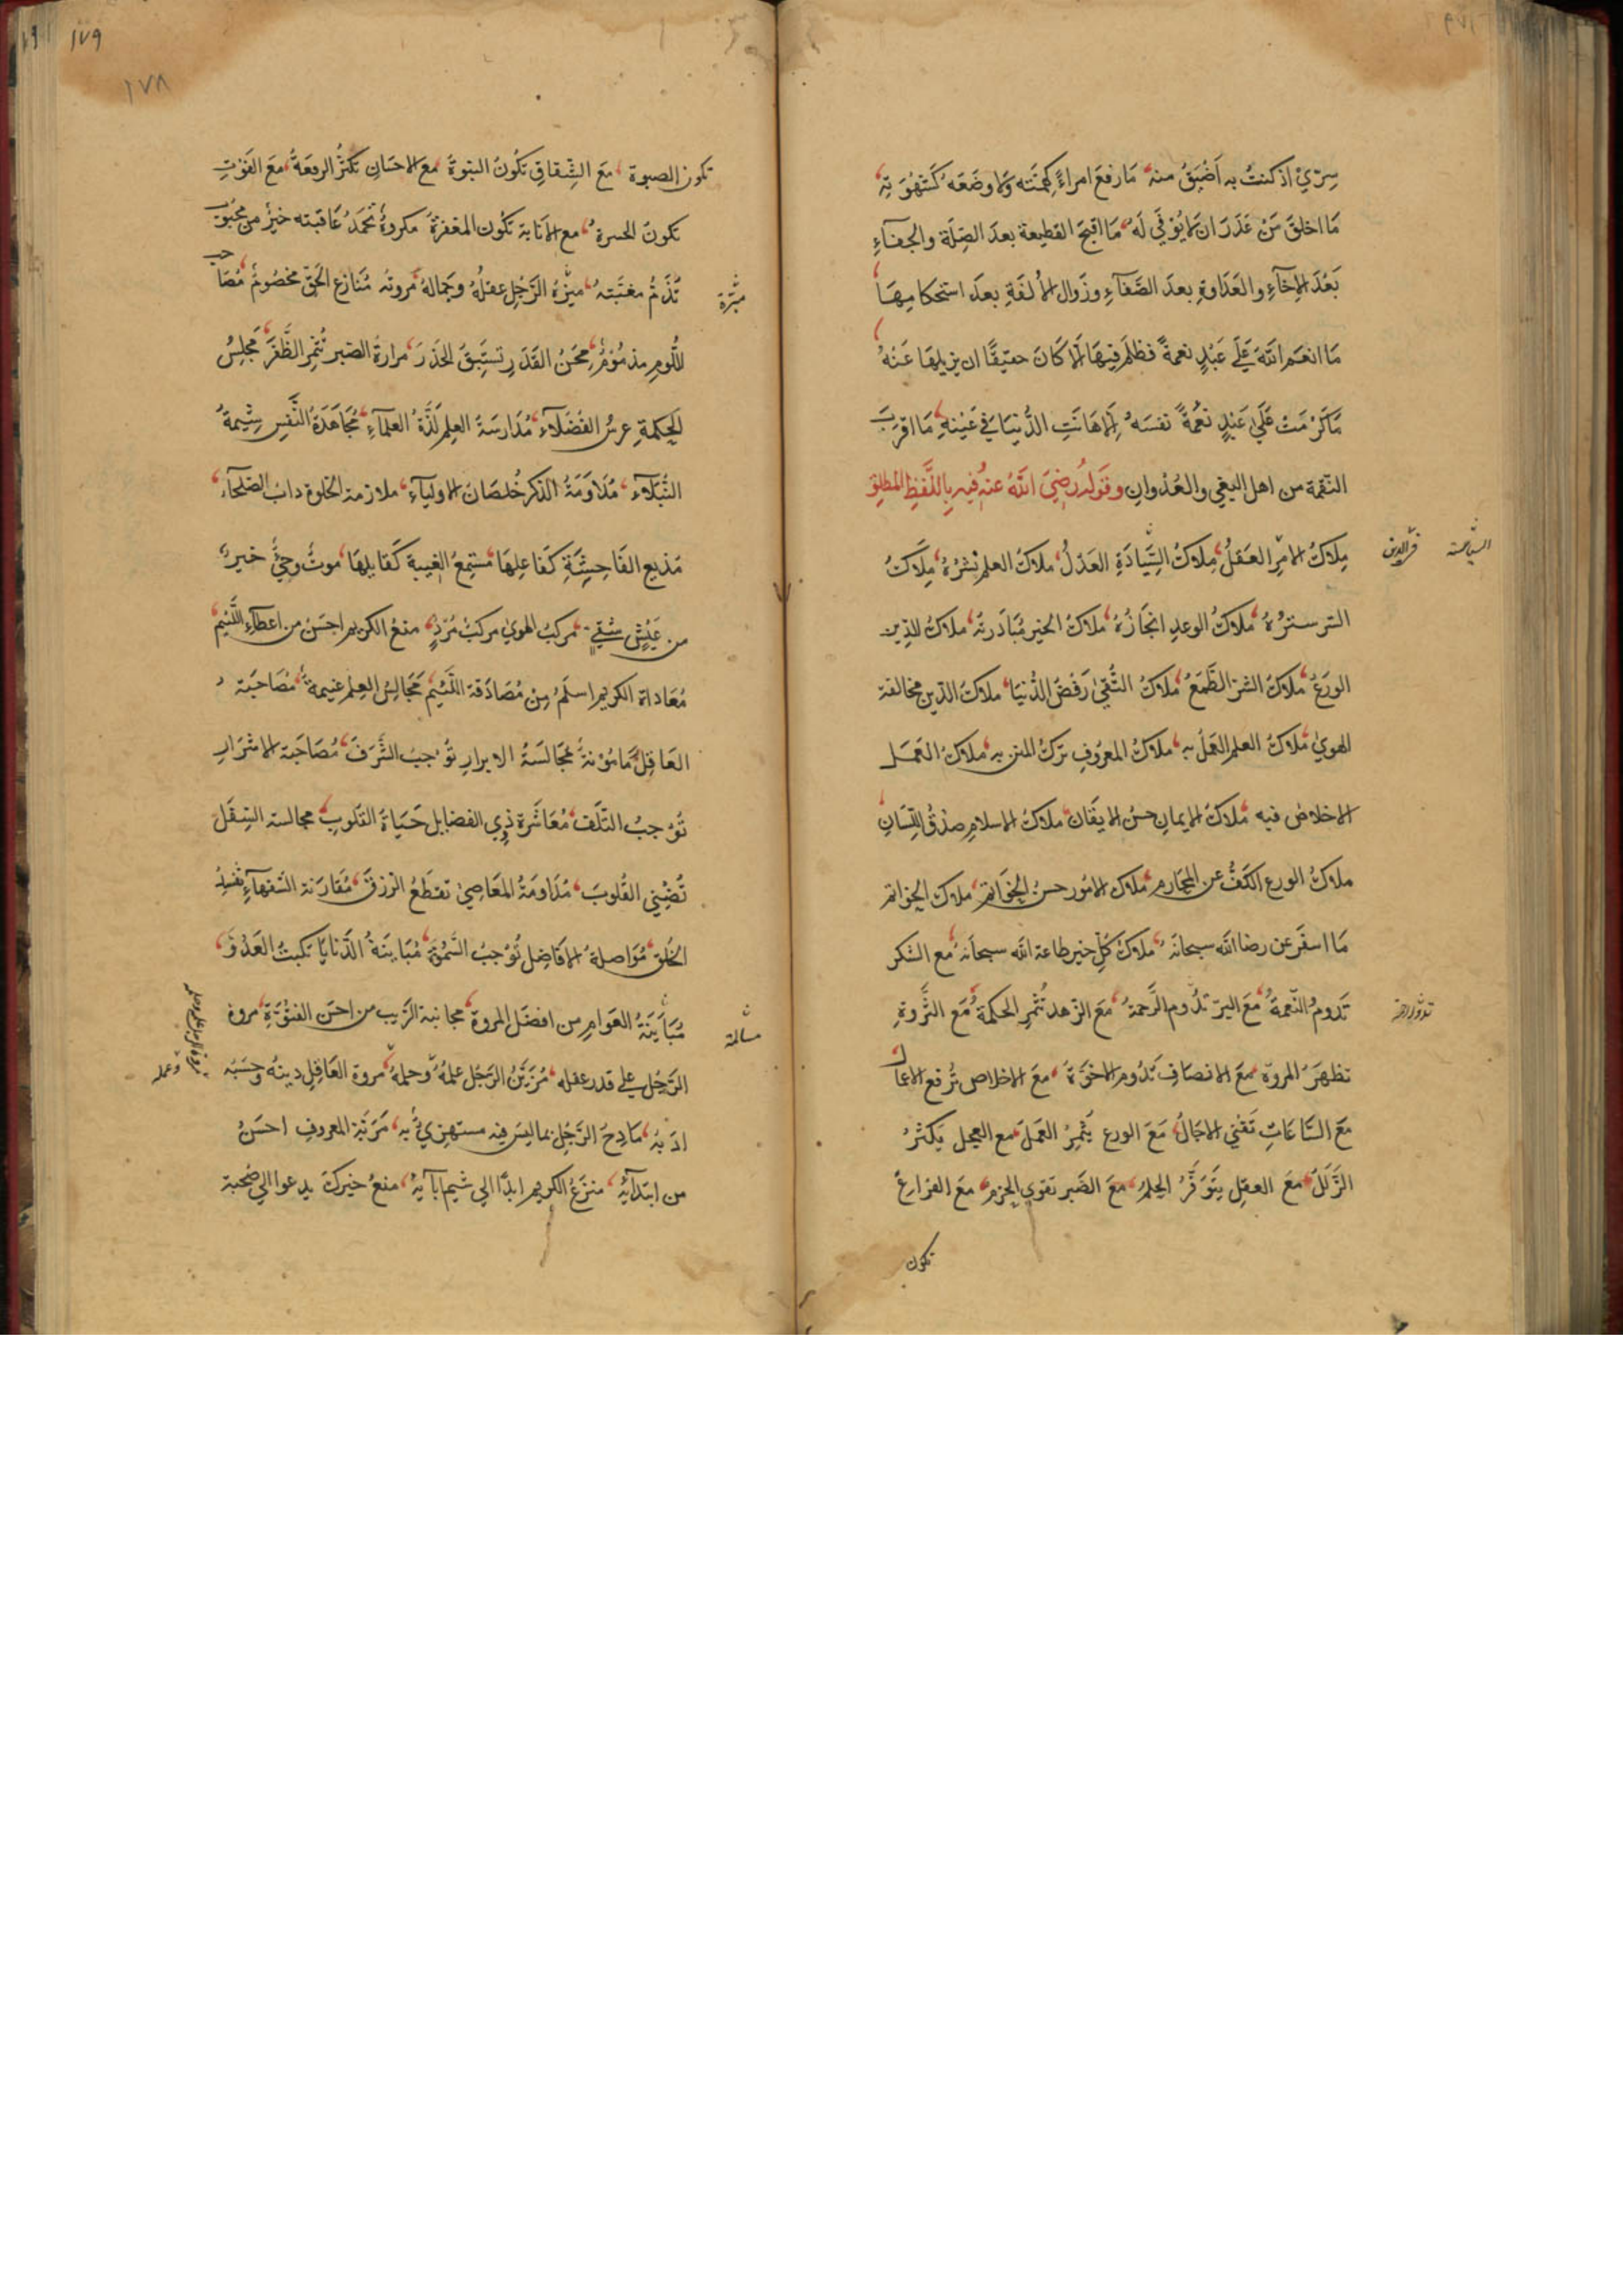 سِرّيْ اذ كنتُ به اَضْيَقُ منه مَا رفعَ امراءً كهِمَّته وَلا وضَعَهُ كَشَهْوَتِهِ
مَا اخلقَ مَنْ غَدَرَ ان لا يُوْفَي لَهُ مَا اقبحَ القطيعة بعدَ الصِّلَة والجفآءِ
بَعْدَ الإخآءِ والعَدَاوةِ بعدَ الصَّفآءِ وزَوال الأُلفَةِ بعدَ استحكامِهَا
مَا انعَم اللّٰه عَلَي عَبْدٍ نعمةً فظلَم فيهَا اِلا كَانَ حقيقًا ان يزيلهَا عَنهُ
مَا كَرُمَتْ عَلَي عَبْدٍ نفسَهُ اِلا هَانَتِ الدُّنيَا في عَيْنِهِ مَا اقربَ
النّقمَة من اهل البغي والعُدْوانِ وقولُه رضيَ اللّٰهُ عنهُ فيهِ باللَّفظِ المُطلق
مِلاكُ الامرِ العَقلُ مِلاكُ السِّيَادَةِ العَدْلُ ملاكُ العلمِ نشْرُهُ مِلاكُ
السّر سترُهُ ملاكُ الوعدِ انجَازُهُ ملاكُ الخيرِ مُبَادَرتُهُ ملاكُ الدِّين
الورَعُ ملاكُ الشرّ الطّمعُ ملاكُ التُّقيٰ رَفضُ الدُّنيَا ملاكُ الدّين مخالفة
الهويٰ ملاكُ العلم العَمَلُ به ملاكُ المعرُوفِ تركُ المنّ به ملاكُ العَمَل
الاخلاصُ فيه ملاكُ الايمانِ حسنُ الايقَان ملاكُ الاسلامِ صِدْقُ اللِّسَانِ
ملاكُ الورع الكفُّ عن المحَارم ملاكُ الامُور حسنُ الخوَاتم ملاكُ الخواتم
مَا اسفَرَ عن رضا اللّٰه سبحانهُ ملاكُ كلّ خيرٍ طاعة اللّٰه سبحانَهُ مع الشكر
تَدومُ النّعمةُ مَعَ البرّ تدُوم الرَّحمةُ مَعَ الزّهد تُثمِر الحكمةُ مَعَ الثّروةِ
تظهرُ المروّة مَعَ الانصَافِ تدُوم الاخوّةُ مَعَ الاخلاص تُرفع الاعمال
مَعَ السَّاعَاتِ تَفني الاجَالُ مَعَ الورع يُثمِرُ العَمَل مع العجل يَكثرُ
الزَّلَلُ مَعَ العقلِ يتَوَفَّرُ الحِلمُ مَعَ الصَّبر تقوي الحزم مَعَ الفراغ
تكون
السياسة
تدوم الرحمة
١٧٩
١٧٨
تكون الصبوة مَعَ الشِّقاقِ تكُونُ النبوةُ مَعَ الاحسَانِ تكثرُ الرفعَةُ مَعَ الفَوْتِ
تكونُ الحسرةُ مع الانَابة تكُون المغفرةُ مكروهٌ تحمَدُ عَاقبته خيرٌ من محبُوبٍ
تُذَمُّ مغبَّتهُ ميزَةُ الرَّجُلِ عقلُهُ وجَمالهُ مُروتُه مُنَازع الحَقّ مخصُومٌ مُصَاحب
اللّومِ مذمُوْمٌ مِحَنُ القَدَرِ تسبِقُ الحَذَرَ مرارةُ الصّبر تُثمِر الظَّفَرَ مَجلِسُ
الحكمَةِ عرسُ الفُضَلآء مُدَارسَةُ العِلم لَذَّةُ العلمآءِ مُجَاهَدَةُ النَّفسِ شِيمَةُ
النُّبَلآء مُدَاوَمَةُ الذّكر خُلصَانُ الاوليآءِ ملازمة الخلوة دابُ الصّلحآءِ
مُذيع الفَاحِشَةِ كفَاعِلهَا مُستمِعُ الغيبة كَقَايلهَا موتٌ وحِيٌّ خيرٌ
من عَيْشٍ شقيٍّ مركبُ الهويٰ مركبٌ مُرْدٍ منعُ الكريم احسَنُ من اعطآءِ اللَّئيم
مُعَاداة الكريم اسلَمُ مِنْ مُصَادَقة اللَّئيم مَجَالسُ العِلم غنيمةٌ مُصَاحَبة
العَاقِل مَامُوْنةٌ مُجَالَسَةُ الابرارِ تُوْجبُ الشَّرَفَ مُصَاحَبة الاشرَارِ
تُوْجبُ التّلَفَ مُعَاشَرة ذوِي الفضايل حَيَاةُ القلُوبِ مجالسة السّفَل
تُضْني القُلوبَ مُدَاومَةُ المعَاصِي تقطَعُ الرّزقَ مُقَارَنة السّفهآءِ تُفسِدُ
الخُلق مُوَاصلةُ الافَاضِل تُوْجبُ السُّمُوَّ مُبَاينَةُ الدَّنايَا تكبتُ العَدُوَّ
مُبَايَنَةُ العَوامِ من افضَل المروة مجانبة الرّيب من احسَن الفتُوَّةِ مروة
الرَّجُل علي قدر عقله مُزَيِّنُ الرّجُل علمهُ وحِلمهُ مروة العَاقِل دينهُ وحَسَبُه
ادَبُهُ مَادِحُ الرَّجُل بما ليسَ فيه مستهزئٌ به مَرتَبة المعروفِ احسَنُ
من ابتدآئِهِ منزَعُ الكريم ابدًا الي شيم آبآئِهِ منعُ خيركَ يدعوا الي صُحبة
مسالمة
وعمله